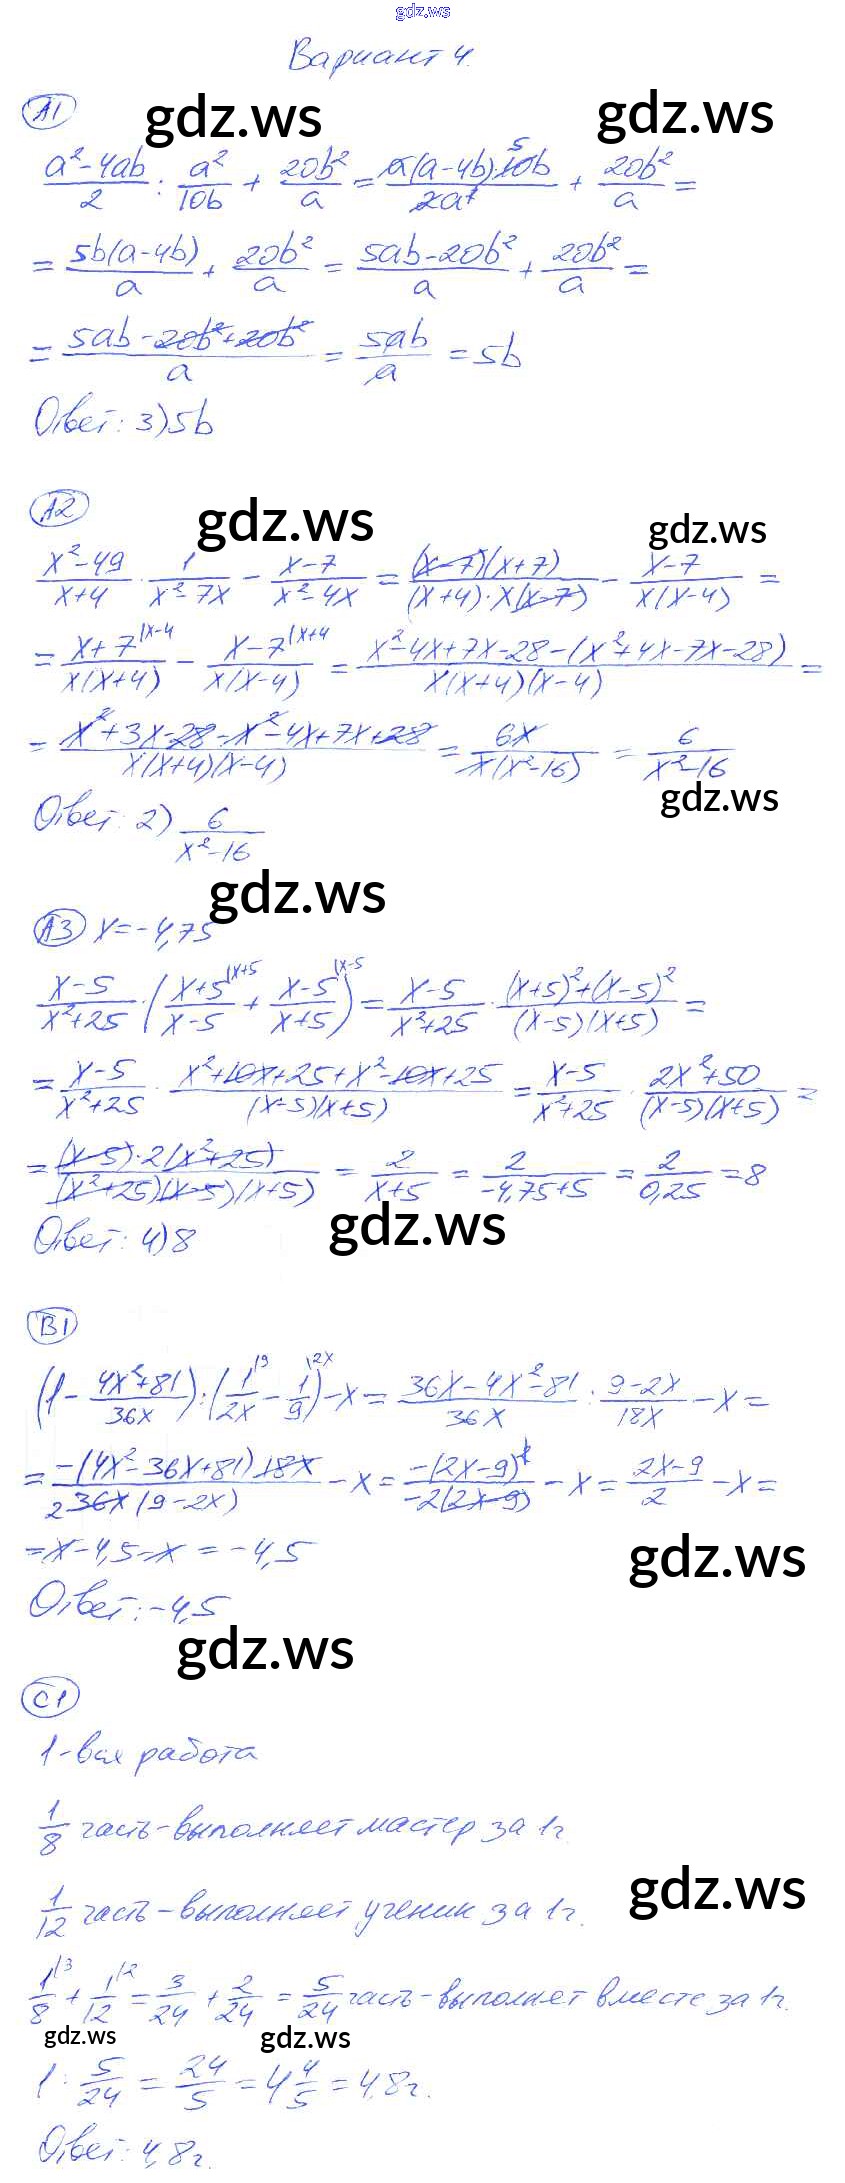 gdz.ws
Вариант 4.
А1
gdz.ws gdz.ws
(a²-4ab)/2 : a²/10b + 20b²/a = a(a-4b)·10b/2a² + 20b²/a =
= 5b(a-4b)/a + 20b²/a = (5ab-20b²)/a + 20b²/a =
= (5ab-20b²+20b²)/a = 5ab/a = 5b
Ответ: 3)5b
А2
gdz.ws gdz.ws
(x²-49)/(x+4) · 1/(x²-7x) - (x-7)/(x²-4x) = (x-7)(x+7)/((x+4)·x(x-7)) - (x-7)/(x(x-4)) =
= (x+7)/(x(x+4)) |x-4 - (x-7)/(x(x-4)) |x+4 = (x²-4x+7x-28-(x²+4x-7x-28))/(x(x+4)(x-4)) =
= (x²+3x-28-x²-4x+7x+28)/(x(x+4)(x-4)) = 6x/(x(x²-16)) = 6/(x²-16)
gdz.ws
Ответ: 2) 6/(x²-16)
gdz.ws
А3 x=-4,75
(x-5)/(x²+25) · ((x+5)/(x-5) |x+5 + (x-5)/(x+5) |x-5) = (x-5)/(x²+25) · ((x+5)²+(x-5)²)/((x-5)(x+5)) =
= (x-5)/(x²+25) · (x²+10x+25+x²-10x+25)/((x-5)(x+5)) = (x-5)/(x²+25) · (2x²+50)/((x-5)(x+5)) =
= (x-5)·2(x²+25)/((x²+25)(x-5)(x+5)) = 2/(x+5) = 2/(-4,75+5) = 2/0,25 = 8
Ответ: 4)8
gdz.ws
В1
(1 - (4x²+81)/36x) : (1/2x |9 - 1/9 |2x) - x = (36x-4x²-81)/36x : (9-2x)/18x - x =
= -(4x²-36x+81)·18x/(2 36x(9-2x)) - x = -(2x-9)²/(-2(2x-9)) - x = (2x-9)/2 - x =
= x-4,5-x = -4,5
gdz.ws
Ответ: -4,5
gdz.ws
С1
1-вся работа
1/8 часть-выполняет мастер за 1г.
gdz.ws
1/12 часть-выполняет ученик за 1г.
1/8 |3 + 1/12 |2 = 3/24 + 2/24 = 5/24 часть-выполняет вместе за 1г.
gdz.ws gdz.ws
1 : 5/24 = 24/5 = 4 4/5 = 4,8г.
Ответ: 4,8г.